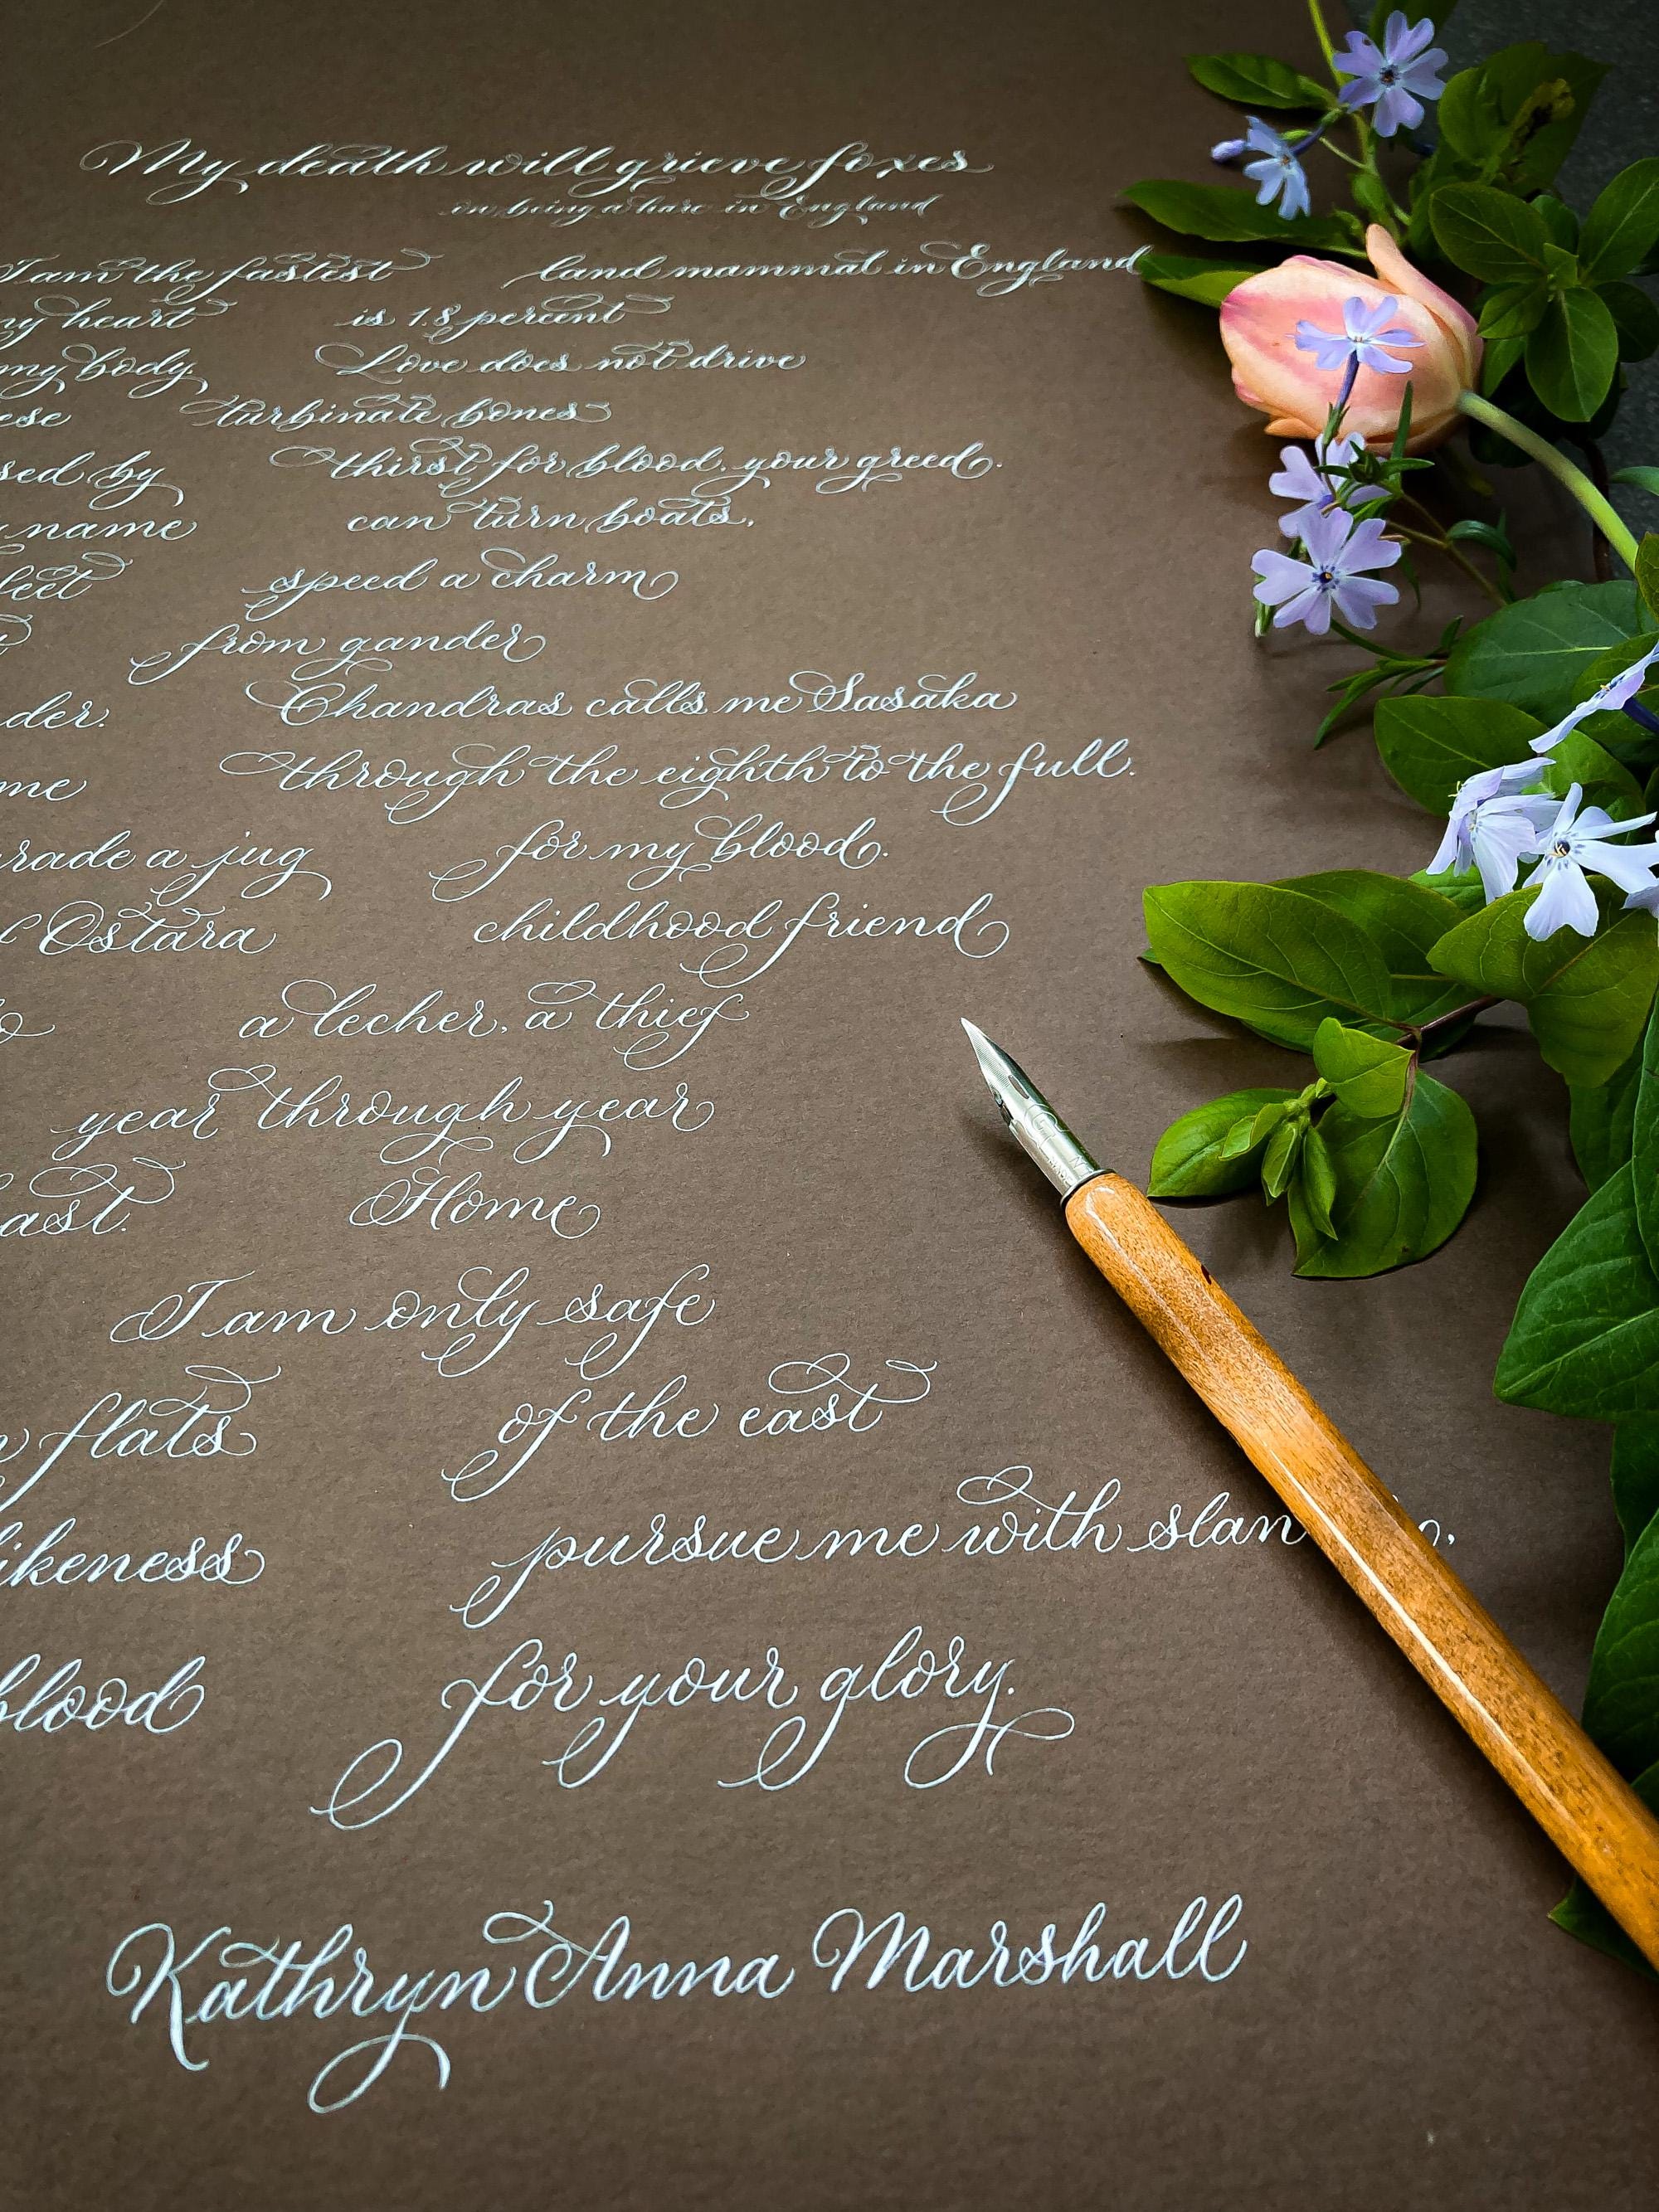 My death will grieve foxes
on being a hare in England
I am the fastest land mammal in England
my heart is 1.8 percent
my body. Love does not drive
turbinate bones
by thirst for blood, your greed.
name can turn boats,
speed a charm
from gander
Chandras calls me Sasaka
me through the eighth to the full.
a jug for my blood.
Ostara childhood friend
a lecher, a thief
year through year
Home
I am only safe
flats of the east
likeness pursue me with
blood for your glory.
Kathryn Anna Marshall